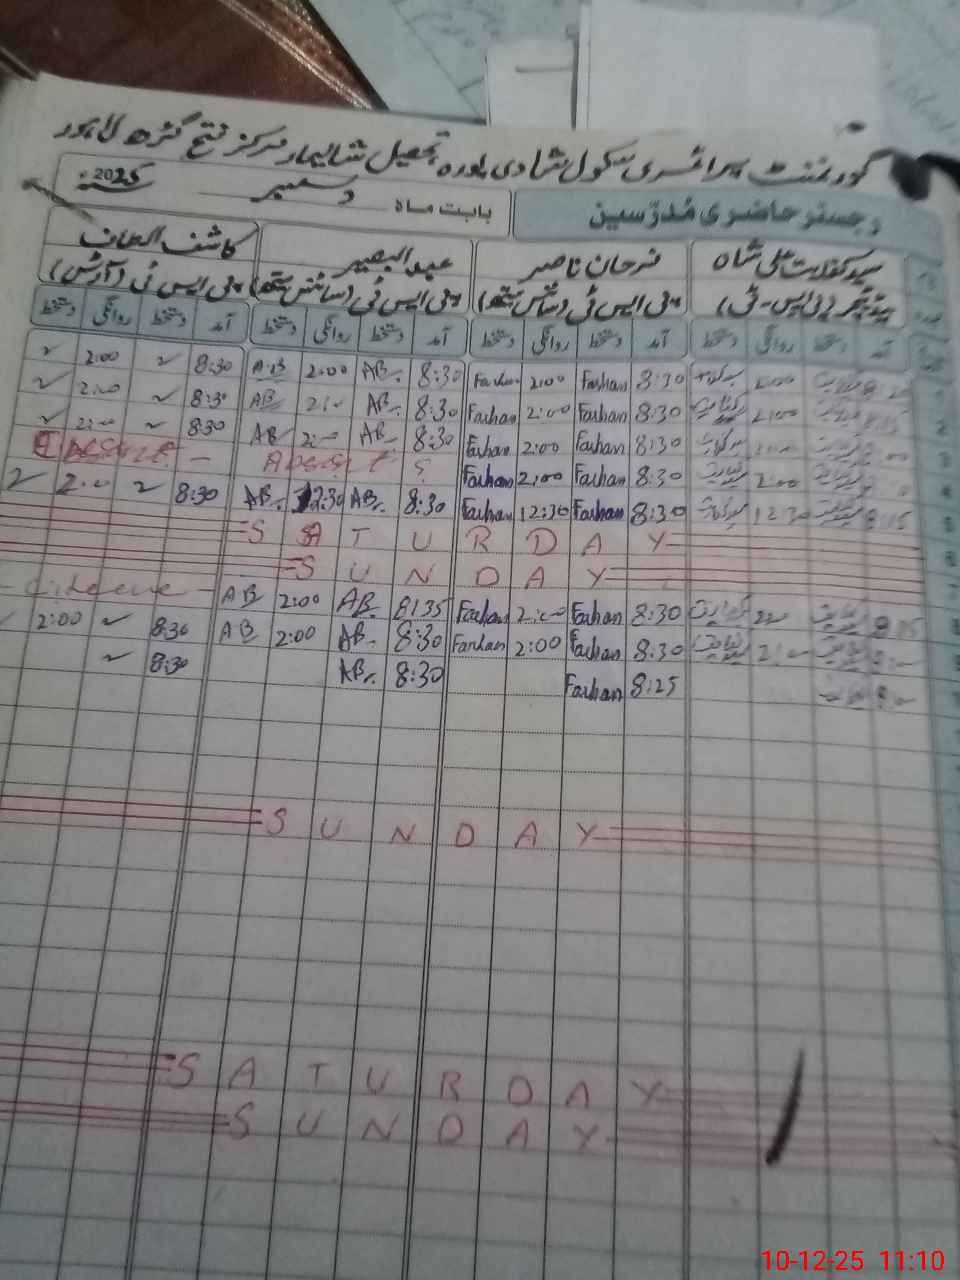 گورنمنٹ پرائمری سکول شادی پورہ تحصیل شالیمار مرکز فتح گڑھ لاہور
رجسٹر حاضری مُدرّسین بابت ماہ دسمبر سنہ 2025
سید کفایت علی شاہ فرحان ناصر عبدالبصیر کاشف الطاف
ہیڈ ٹیچر (پی ایس ٹی) پی ایس ٹی (سائنس میتھ) پی ایس ٹی (سائنس میتھ) پی ایس ٹی (آرٹس)
آمد دستخط روانگی دستخط آمد دستخط روانگی دستخط آمد دستخط روانگی دستخط آمد دستخط روانگی دستخط
1 2:00 8:30 Farhan 2:00 Farhan 8:30 AB 2:00 AB 8:30 2:00
2 8:15 2:00 8:30 Farhan 2:00 Farhan 8:30 AB 2:00 AB 8:30 2:00
3 8:30 Farhan 2:00 Farhan 8:30 AB 2:00 AB 8:30 2:00
4 2:00 8:30 Farhan 2:00 Farhan Absent
5 8:15 12:30 8:30 Farhan 12:30 Farhan 8:30 AB 12:30 AB 8:30 2:00
6 SATURDAY
7 SUNDAY
8 8:15 8:30 Farhan 2:00 Farhan 8:35 AB 2:00 AB
8:30 Farhan 2:00 Farhan 8:30 AB 2:00 AB 8:30 2:00
8:25 Farhan 8:30 AB 8:30
SUNDAY
SATURDAY
SUNDAY
10-12-25 11:10